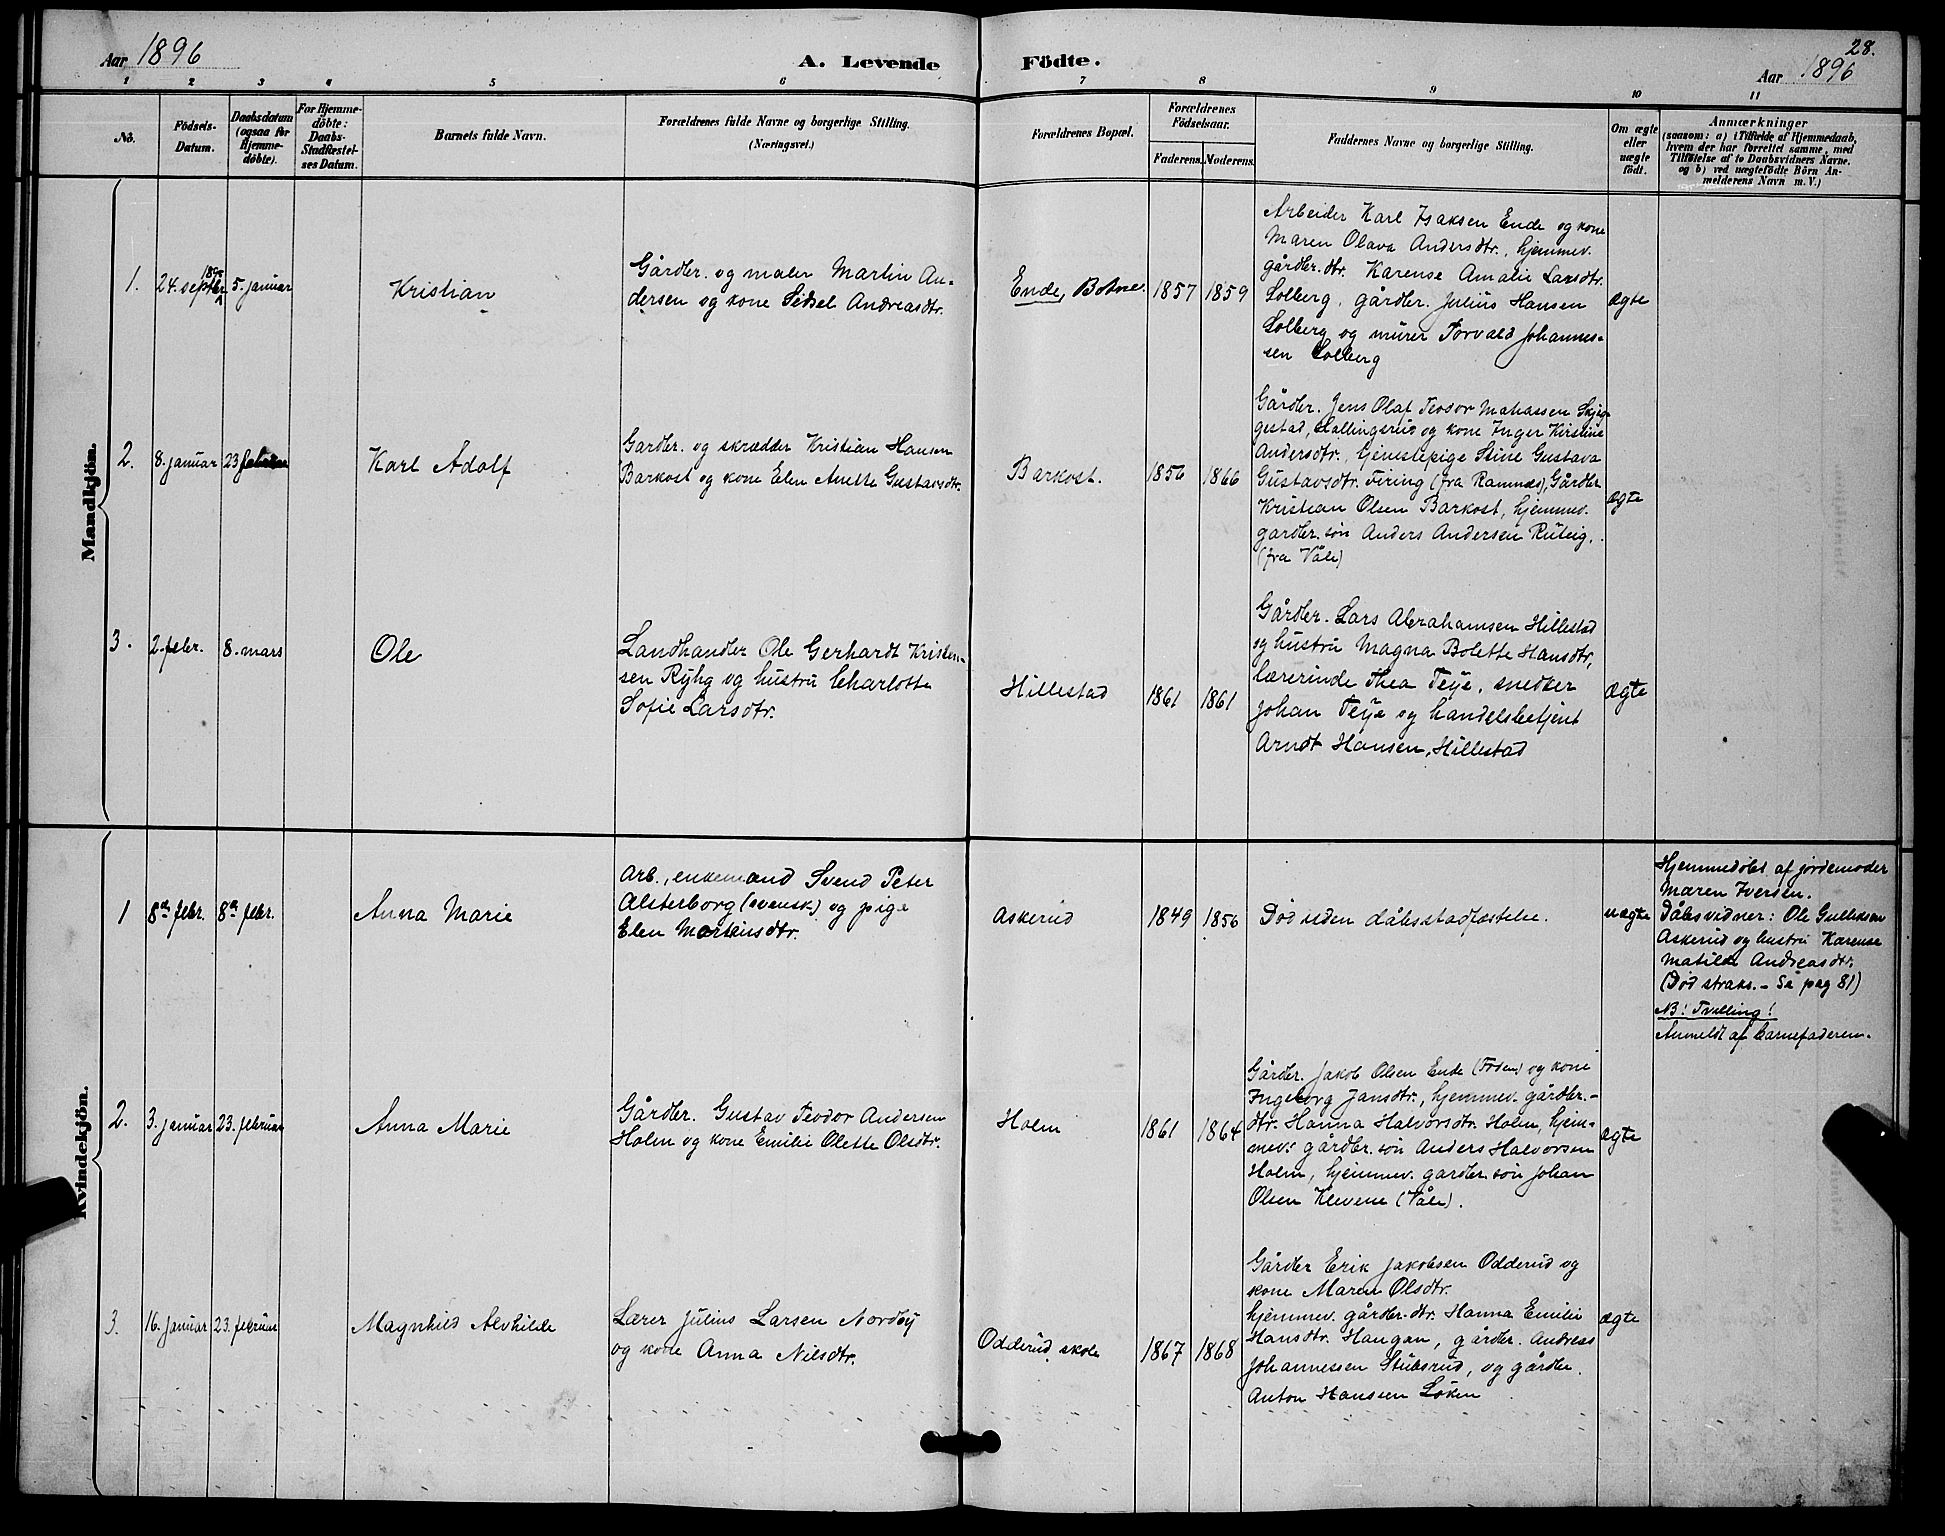 Aar 1896
A. Levende Födte.
28.
Aar 1896
1 2 3 4 5 6 7 8 9 10 11
No.
Födsels-
Datum.
Daabsdatum
(ogsaa for
Hjemme-
döbte).
For Hjemme-
döbte:
Daabs-
Stadfæstel-
ses Datum.
Barnets fulde Navn.
Forældrenes fulde Navne og borgerlige Stilling.
(Næringsvei.)
Forældrenes Bopæl.
Forældrenes
Födselsaar.
Faderens. Moderens.
Faddernes Navne og borgerlige Stilling.
Om ægte
eller
uægte
födt.
Anmærkninger
(saasom: a) i Tilfælde af Hjemmedaab,
hvem der har forrettet samme, med
Tilföielse af to Daabsvidners Navne.
og b) ved uægtefödte Börn An-
melderens Navn m. V.)
Mandkjön.
1.
24. septbr.
5. januar
Kristian
Gårdbr. og maler Martin An-
dersen og kone Sidsel Andreasdtr.
Ende, Botne.
1857
1859
Arbeider Karl Isaksen Ende og kone
Maren Olava Andersdtr., hjemmev.
gårdbr. dtr. Karense Amalie Larsdtr.
Solberg, gårdbr. Julius Hansen
Solberg og murer Torvald Johannes-
sen Solberg
ægte
2.
8. januar
23 februar
Karl Adolf
Gardbr. og skrædder Kristian Hansen
Barkost og kone Elen Anette Gustavsdtr.
Barkost.
1856
1866
Gårdbr. Jens Olaf Teodor Mathassen Skjeg-
gestad, Hallingerud og kone Inger Kirstine
Andersdtr., tjenestepige Stine Gustava
Gustavsdtr. Firing (fra Ramnæs), Gårdbr.
Kristian Olsen Barkost, hjemmev.
gardbr. søn Anders Andersen Rueig.
(fra Våle)
ægte
3.
2. febr.
8. mars
Ole
Landhandler Ole Gerhardt Kristen-
sen Ryhg og hustru Charlotte
Sofie Larsdtr.
Hillestad
1861
1861
Gårdbr. Lars Abrahamsen Hillestad
og hustru Magna Bolette Hansdtr,
lærerinde Thea Teije, snedker
Johan Teije og handelsbetjent
Arndt Hansen, Hillestad
ægte
Kvindekjön.
1
8de febr.
8de febr.
Anna Marie
Arb., enkemand Svend Peter
Alsterborg (svensk) og pige
Elen Martinsdtr.
Askerud
1849
1856
Død uden dåbsstadfæstelse.
uægte
Hjemmedöbt af jordemoder
Maren Iversen.
Dåbsvidner: Ole Gulliksen
Askerud og hustru Karense
Matilde Andreasdtr.
(Død straks. – Se pag 81)
NB! Tvilling!
Anmeldt af barnefaderen.
2.
3. januar
23. februar
Anna Marie
Gårdbr. Gustav Teodor Andersen
Holm og kone Emilie Olette Olsdtr.
Holm
1861
1864
Gårdbr. Jakob Olsen Ende (Fossen) og kone
Ingeborg Jansdtr., hjemmev. gårdbr. –
dtr. Hanna Halvorsdtr. Holm, hjem-
mev. gårdbr. søn Anders Halvorsen
Holm, hjemmev. gardbr. søn Johan
Olsen Klevene (Våle).
ægte
3.
16. januar
23. februar
Magnhild Alvhilde
Lærer Julius Larsen Nordby
og kone Anna Nilsdtr.
Odderud skole
1867
1868
Gårdbr Erik Jakobsen Odderud og
kone Maren Olsdtr.
hjemmev. gårdbr. dtr. Hanna Emilie
Hansdtr. Haugan, gårdbr. Andreas
Johannessen Stubsrud, og gårdbr.
Anton Hanssen Løken
ægte